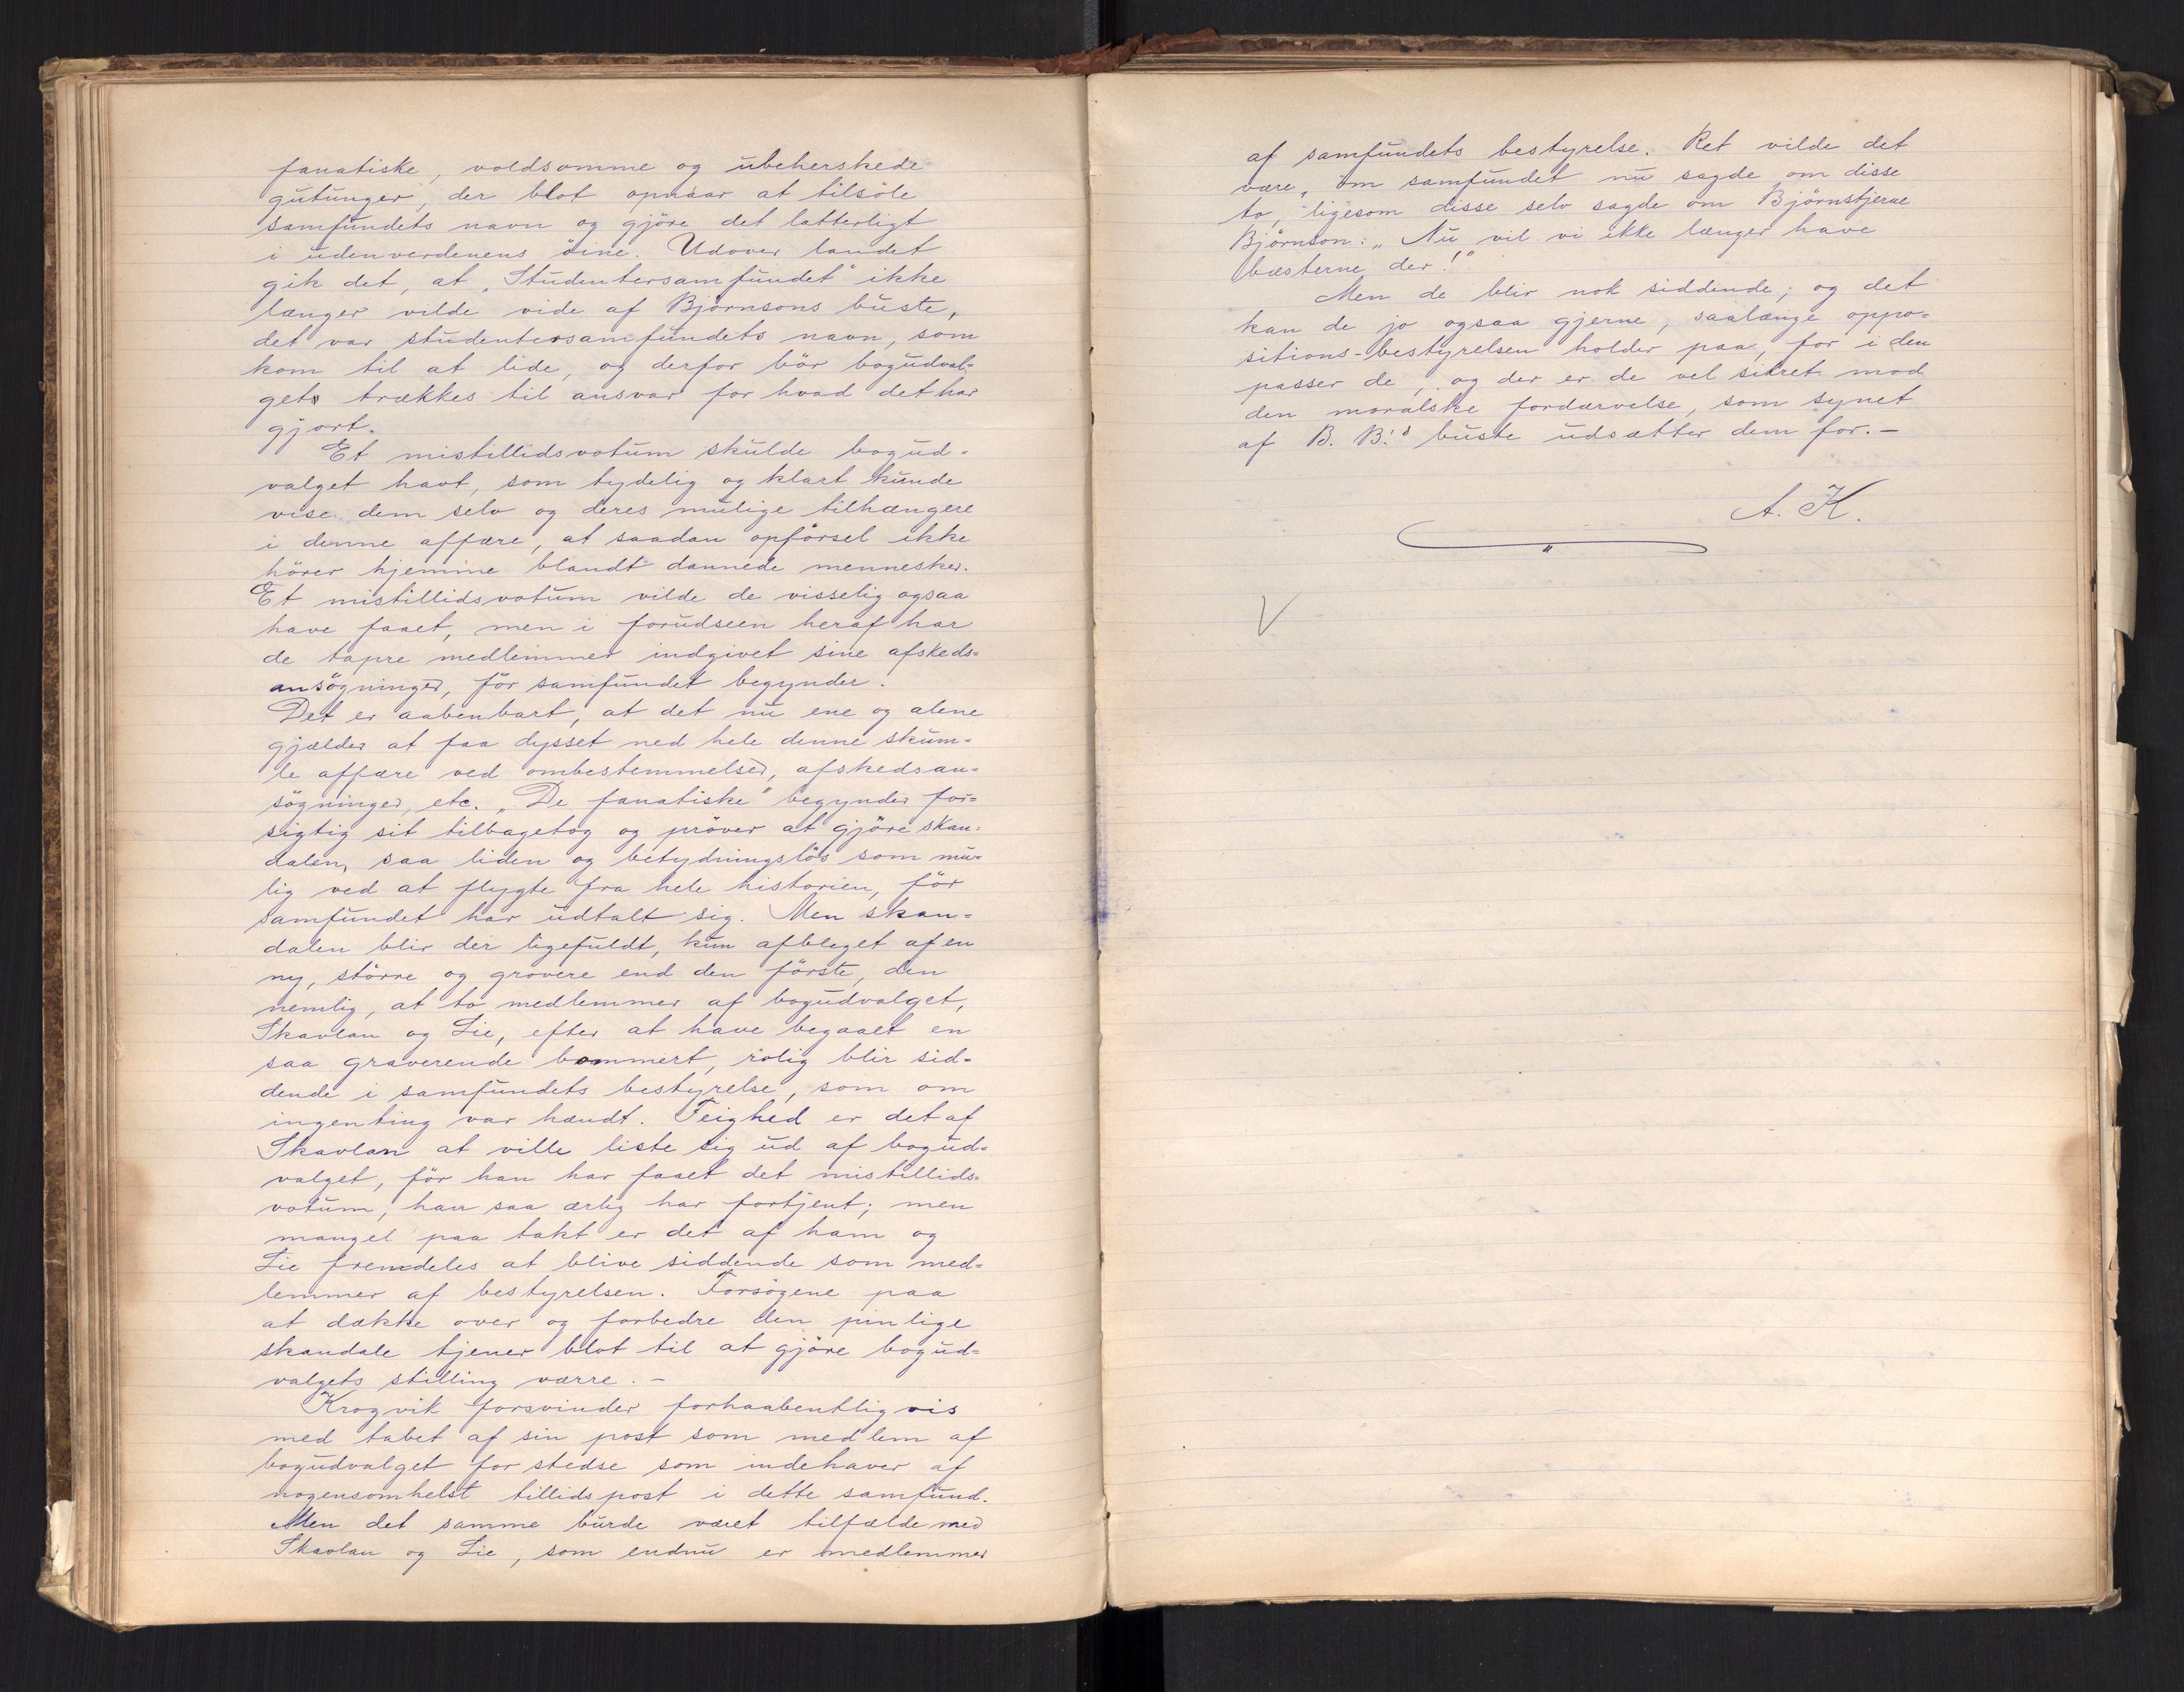 fanatiske, voldsomme og ubeherskede
gutunger, der blot opnaar at tilsöle
samfundets navn og gjöre det latterligt
i udenverdenens öine. Udover landet
gik det, at „Studentersamfundet" ikke
længer vilde vide af Björnsons buste,
det var studentersamfundets navn, som
kom til at lide, og derfor bör bogudval=
gets trækkes til ansvar for hvad det har
gjort.
Et mistillidsvotum skulde bogud=
valget havt, som tydelig og klart kunde
vise dem selv og deres mulige tilhængere
i denne affære, at saadan opförsel ikke
hörer hjemme blandt dannede mennesker.
Et mistillidsvotum vilde de visselig ogsaa
have faaet, men i forudseen heraf har
de tapre medlemmer indgivet sine afskeds=
ansögninger, för samfundet begynder.
Det er aabenbart, at det nu ene og alene
gjælder at faa dysset ned hele denne skum=
le affære ved ombestemmelser, afskedsan=
sögninger, etc. „De fanatiske" begynder for=
sigtig sit tilbagetog og pröver at gjöre skan=
dalen, saa liden og betydningslös som mu=
lig ved at flygte fra hele historien, för
samfundet har udtalt sig. Men skan=
dalen blir der ligefuldt, kun afbleget af en
ny, större og grovere end den förste, den
nemlig, at to medlemmer af bogudvalget,
Skavlan og Lie, efter at have begaaet en
saa graverende bommert, rolig blir sid=
dende i samfundets bestyrelse, som om
ingenting var hændt. Feighed er det af
Skavlan at ville liste sig ud af bogud=
valget, för han har faaet det mistillids=
votum, han saa ærlig har fortjent; men
mangel paa takt er det af ham og
Lie fremdeles at blive siddende som med=
lemmer af bestyrelsen. Forsögene paa
at dække over og forbedre den pinlige
skandale tjener blot til at gjöre bogud=
valgets stilling værre. –
Krogvik forsvinder forhaabentligvis
med tabet af sin post som medlem af
bogudvalget for stedse som indehaver af
nogensomhelst tillidspost i dette samfund.
Men det samme burde været tilfælde med
Skavlan og Lie, som endnu er medlemmer
af samfundets bestyrelse. Ret vilde det
være, om samfundet nu sagde om disse
to, ligesom disse selv sagde om Björnstjerne
Björnson: „Nu vil vi ikke længer have
bæsterne der!"
Men de blir nok siddende; og det
kan de jo ogsaa gjerne, saalænge oppo=
sitions-bestyrelsen holder paa, for i den
passer de, og der er de vel sikret mod
den moralske fordærvelse, som synet
af B. B.'s buste udsætter dem for. –
A. K.